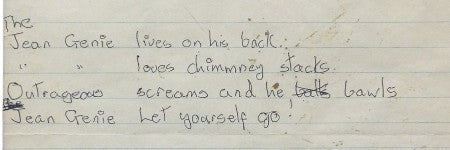 The
Jean Genie lives on his back.
" " loves chimmney stacks
Outrageous screams and he bawls
Jean Genie Let yourself go!